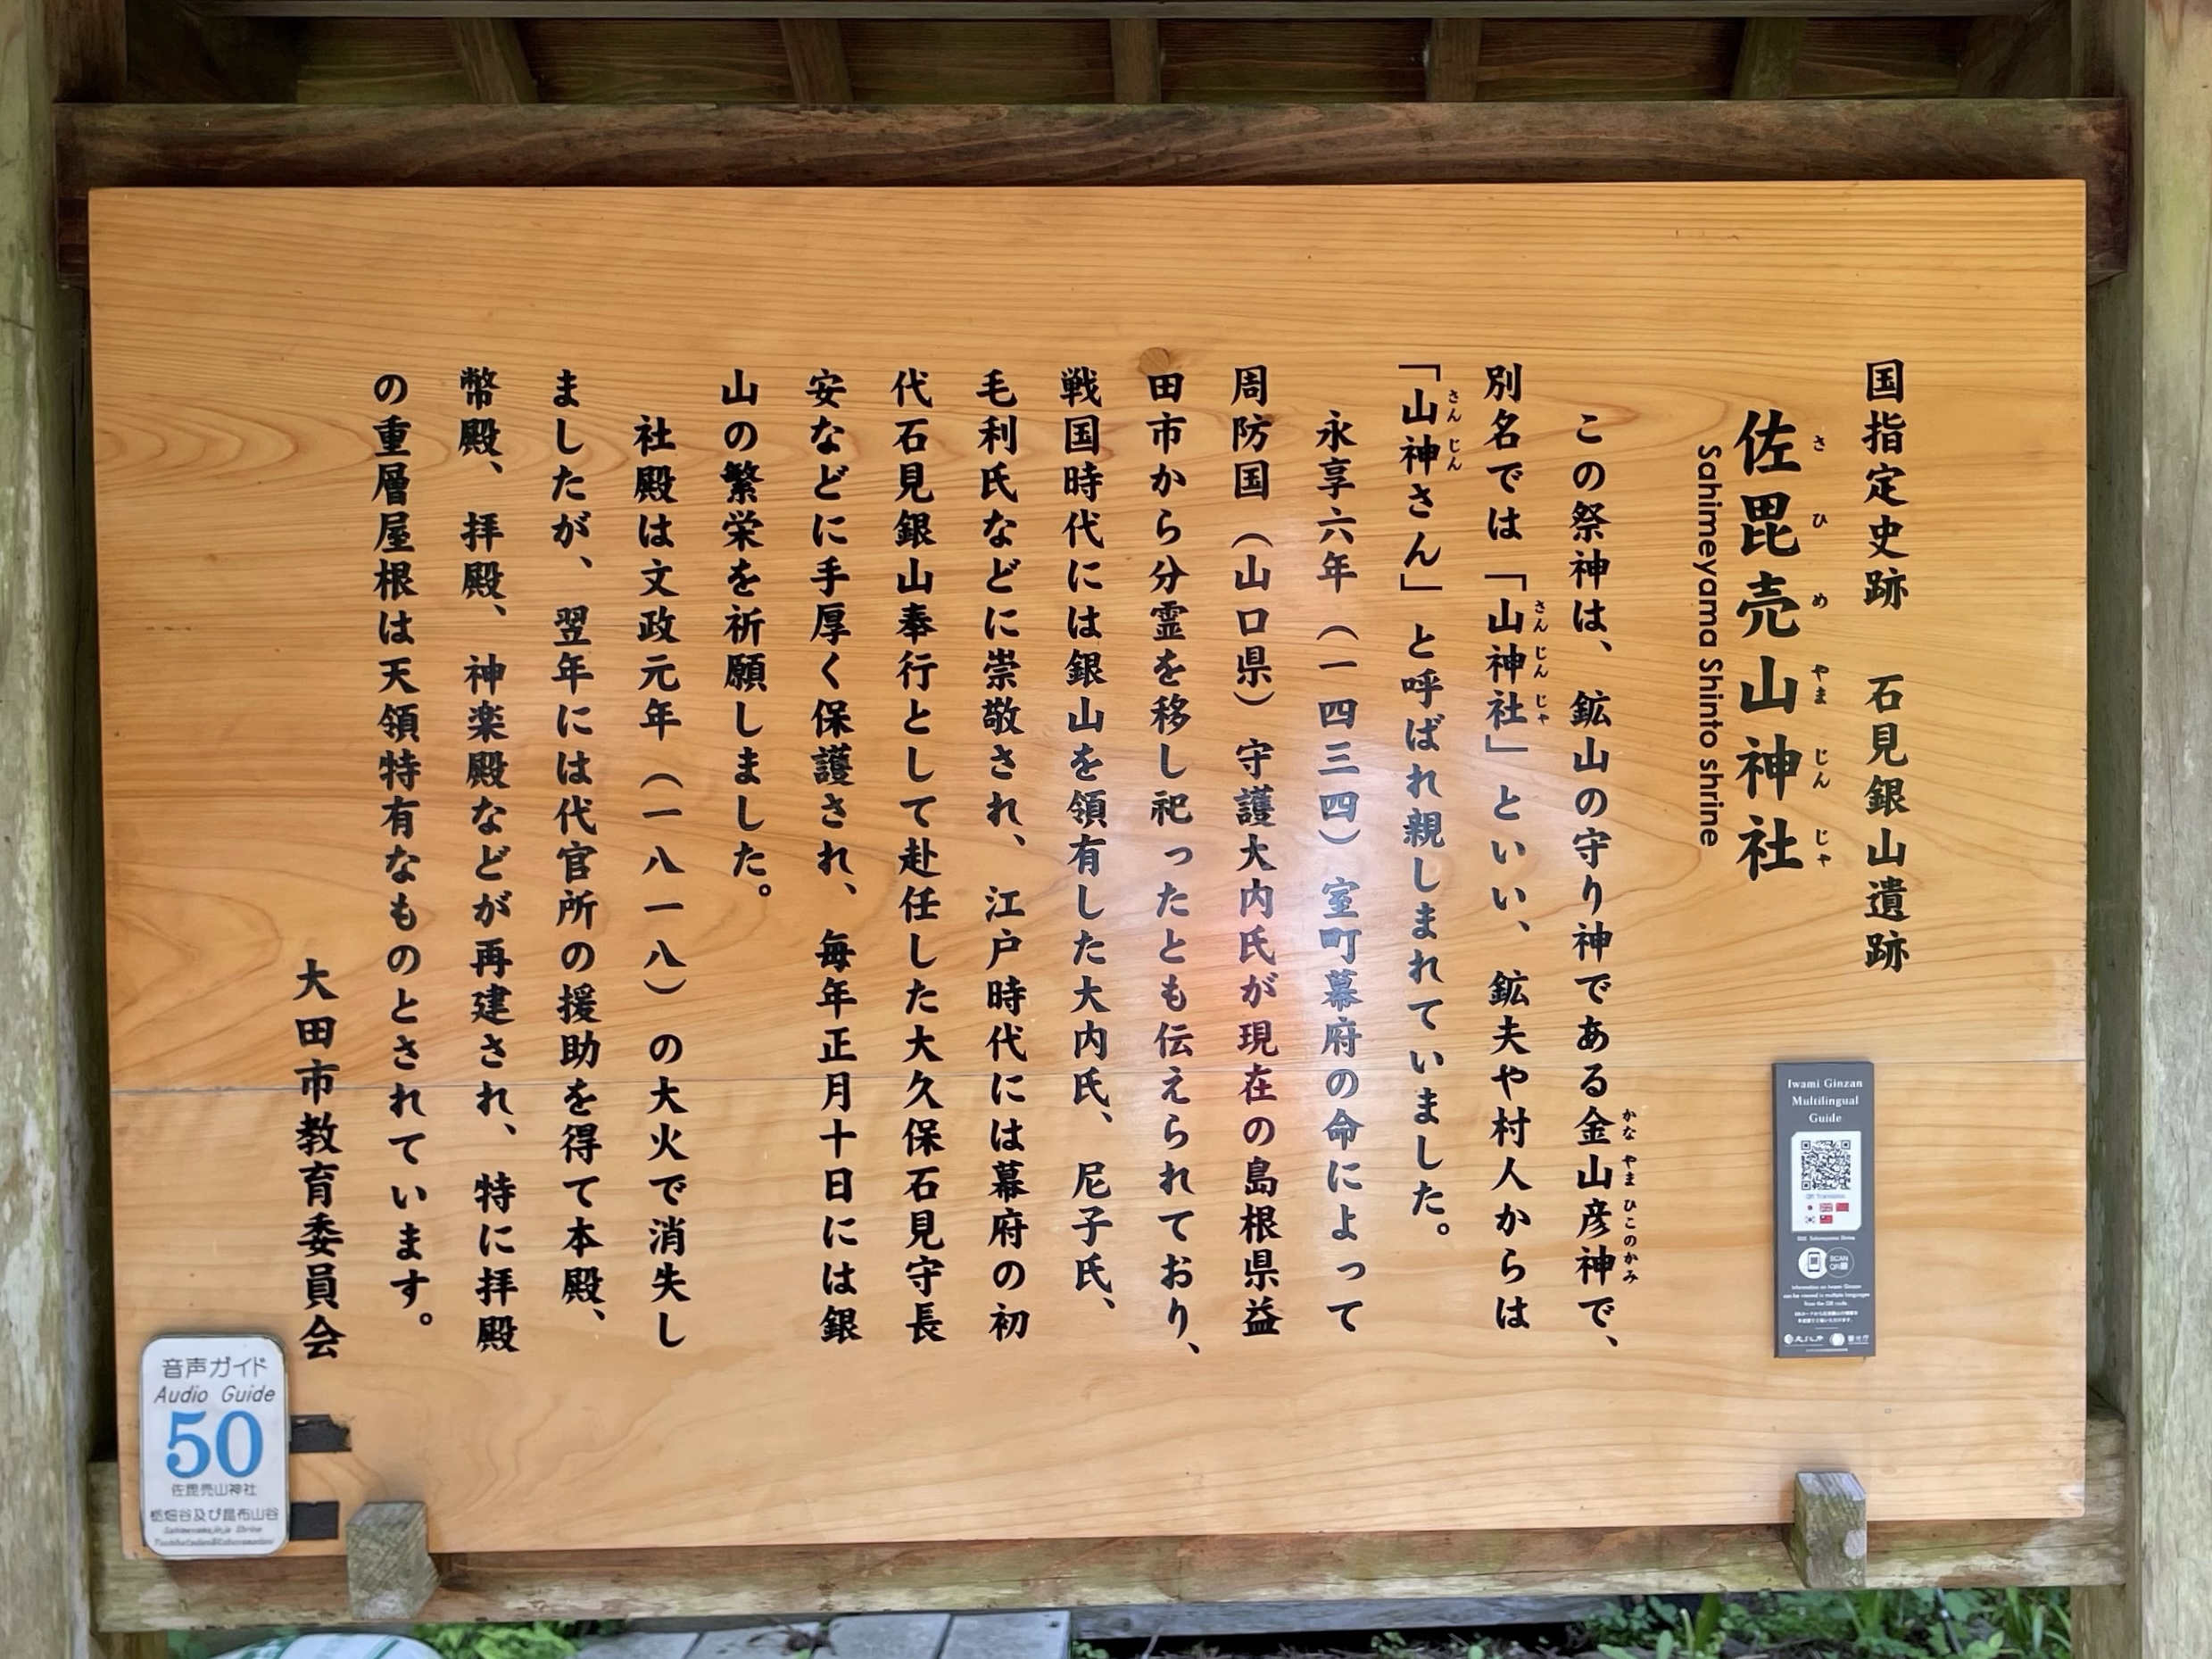 国指定史跡　石見銀山遺跡
佐毘売山神社
さひめやまじんじゃ
Sahimeyama Shinto shrine
この祭神は、鉱山の守り神である金山彦神で、
かなやまひこのかみ
別名では「山神社」といい、鉱夫や村人からは
さんじんじゃ
「山神さん」と呼ばれ親しまれていました。
さんじん
永享六年（一四三四）室町幕府の命によって
周防国（山口県）守護大内氏が現在の島根県益
田市から分霊を移し祀ったとも伝えられており、
戦国時代には銀山を領有した大内氏、尼子氏、
毛利氏などに崇敬され、江戸時代には幕府の初
代石見銀山奉行として赴任した大久保石見守長
安などに手厚く保護され、毎年正月十日には銀
山の繁栄を祈願しました。
社殿は文政元年（一八一八）の大火で消失し
ましたが、翌年には代官所の援助を得て本殿、
幣殿、拝殿、神楽殿などが再建され、特に拝殿
の重層屋根は天領特有なものとされています。
大田市教育委員会
Iwami Ginzan
Multilingual
Guide
QR Translator
SCAN
QR
information on Iwami Ginzan
can be viewed in multiple languages
from the QR code.
文化庁
音声ガイド
Audio Guide
50
佐毘売山神社
栃畑谷及び昆布山谷